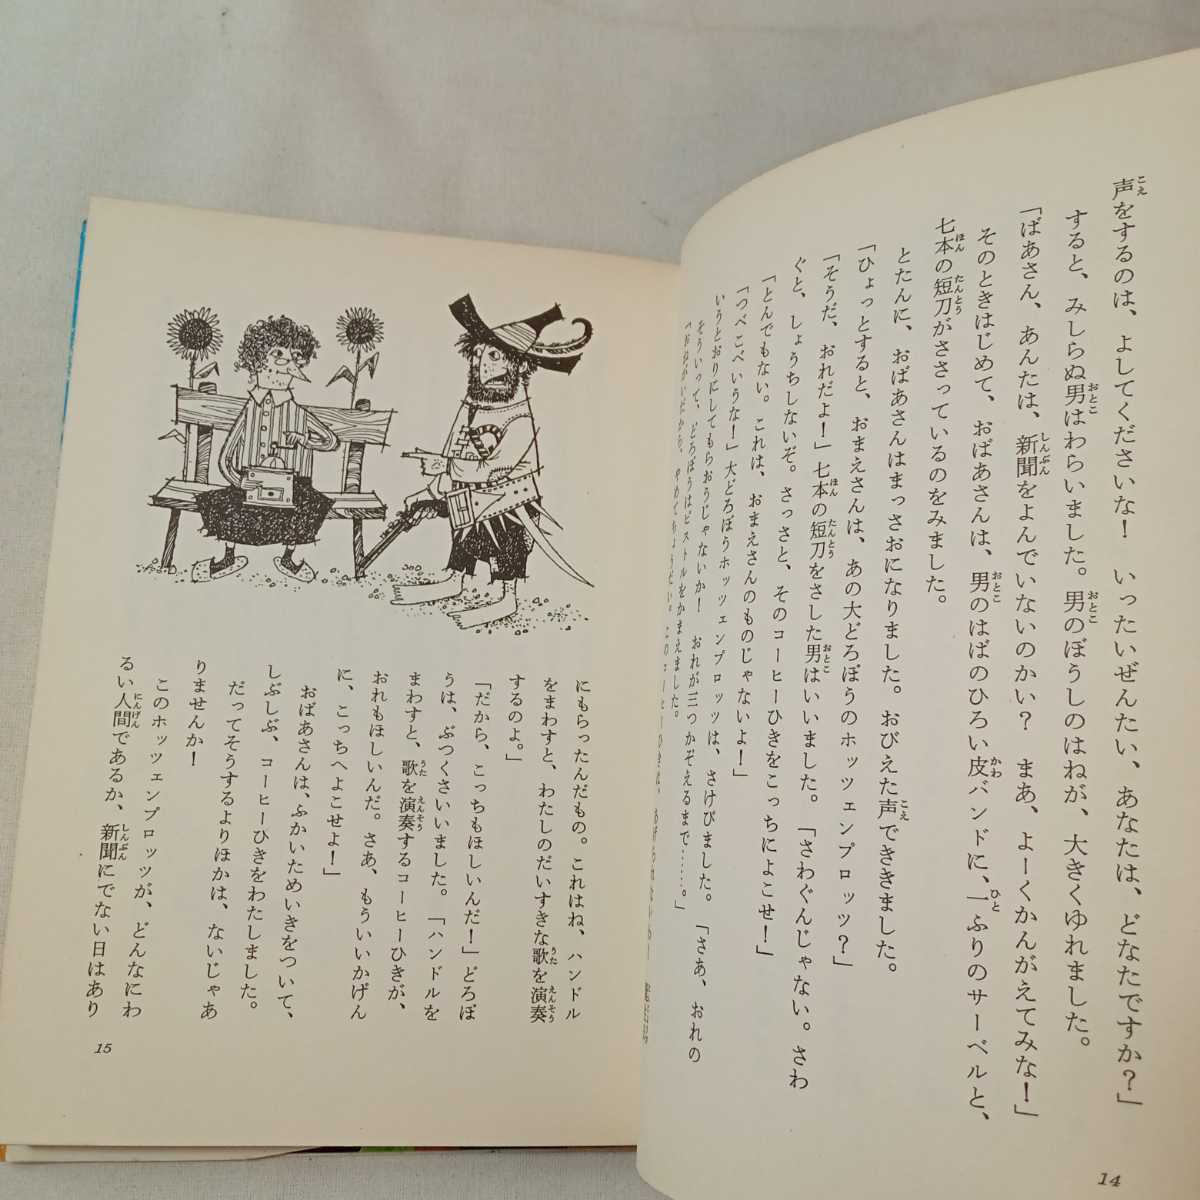 声をするのは、よしてくださいな！　いったいぜんたい、あなたは、どなたですか？」
すると、みしらぬ男はわらいました。男のぼうしのはねが、大きくゆれました。
「ばあさん、あんたは、新聞をよんでいないのかい？　まあ、よーくかんがえてみな！」
そのときはじめて、おばあさんは、男のはばのひろい皮バンドに、一ふりのサーベルと、
七本の短刀がささっているのをみました。
とたんに、おばあさんはまっさおになりました。おびえた声でききました。
「ひょっとすると、おまえさんは、あの大どろぼうのホッツェンプロッツ？」
「そうだ、おれだよ！」七本の短刀をさした男はいいました。「さわぐんじゃない。さわ
ぐと、しょうちしないぞ。さっさと、そのコーヒーひきをこっちによこせ！」
「とんでもない。これは、おまえさんのものじゃないよ！」
「つべこべいうな！」大どろぼうホッツェンプロッツは、さけびました。「さあ、おれの
いうとおりにしてもらおうじゃないか！　おれが三つかぞえるまで……。」
そういって、どろぼうはピストルをかまえました。
「おねがいだから、やめてちょうだい。このコーヒーひきは、
14
にもらったんだもの。これはね、ハンドル
をまわすと、わたしのだいすきな歌を演奏
するのよ。」
「だから、こっちもほしいんだ！」どろぼ
うは、ぶつくさいいました。「ハンドルを
まわすと、歌を演奏するコーヒーひきが、
おれもほしいんだ。さあ、もういいかげん
に、こっちへよこせよ！」
おばあさんは、ふかいためいきをついて、
しぶしぶ、コーヒーひきをわたしました。
だってそうするよりほかは、ないじゃあ
りませんか！
このホッツェンプロッツが、どんなにわ
るい人間であるか、新聞にでない日はあり
15